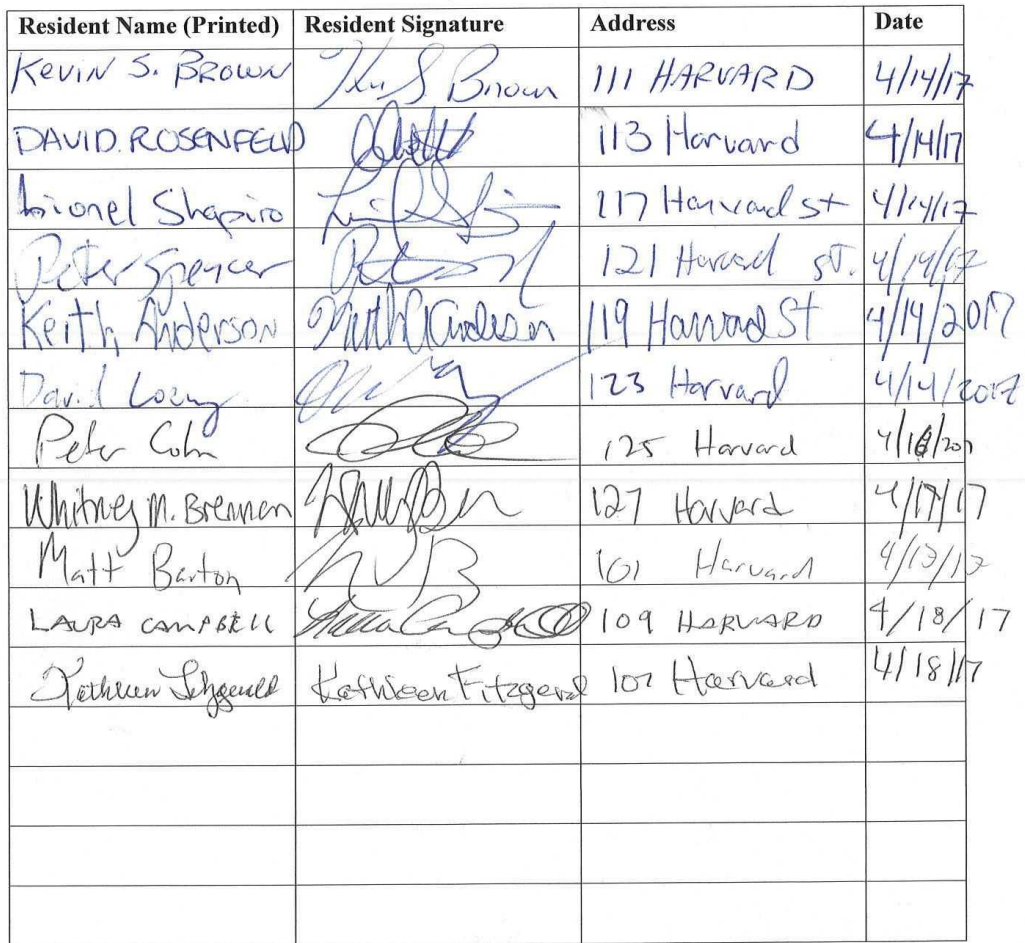 Resident Name (Printed) Resident Signature Address Date
KEVIN S. BROWN Kev S Brown 111 HARVARD 4/14/17
DAVID ROSENFELD 113 Harvard 4/14/17
Lionel Shapiro 117 Harvard st 4/14/17
Peter Spencer 121 Harvard ST. 4/14/17
Keith Anderson Keith Anderson 119 Harvard St 4/14/2017
David 123 Harvard 4/14/2017
Peter Cohn 125 Harvard
Whitney M. Brennan 127 Harvard 4/17/17
Matt Barton 101 Harvard 4/17/17
LAURA CAMPBELL Laura Campbell 109 HARVARD 4/18/17
Kathleen Fitzgerald Kathleen Fitzgerald 107 Harvard 4/18/17